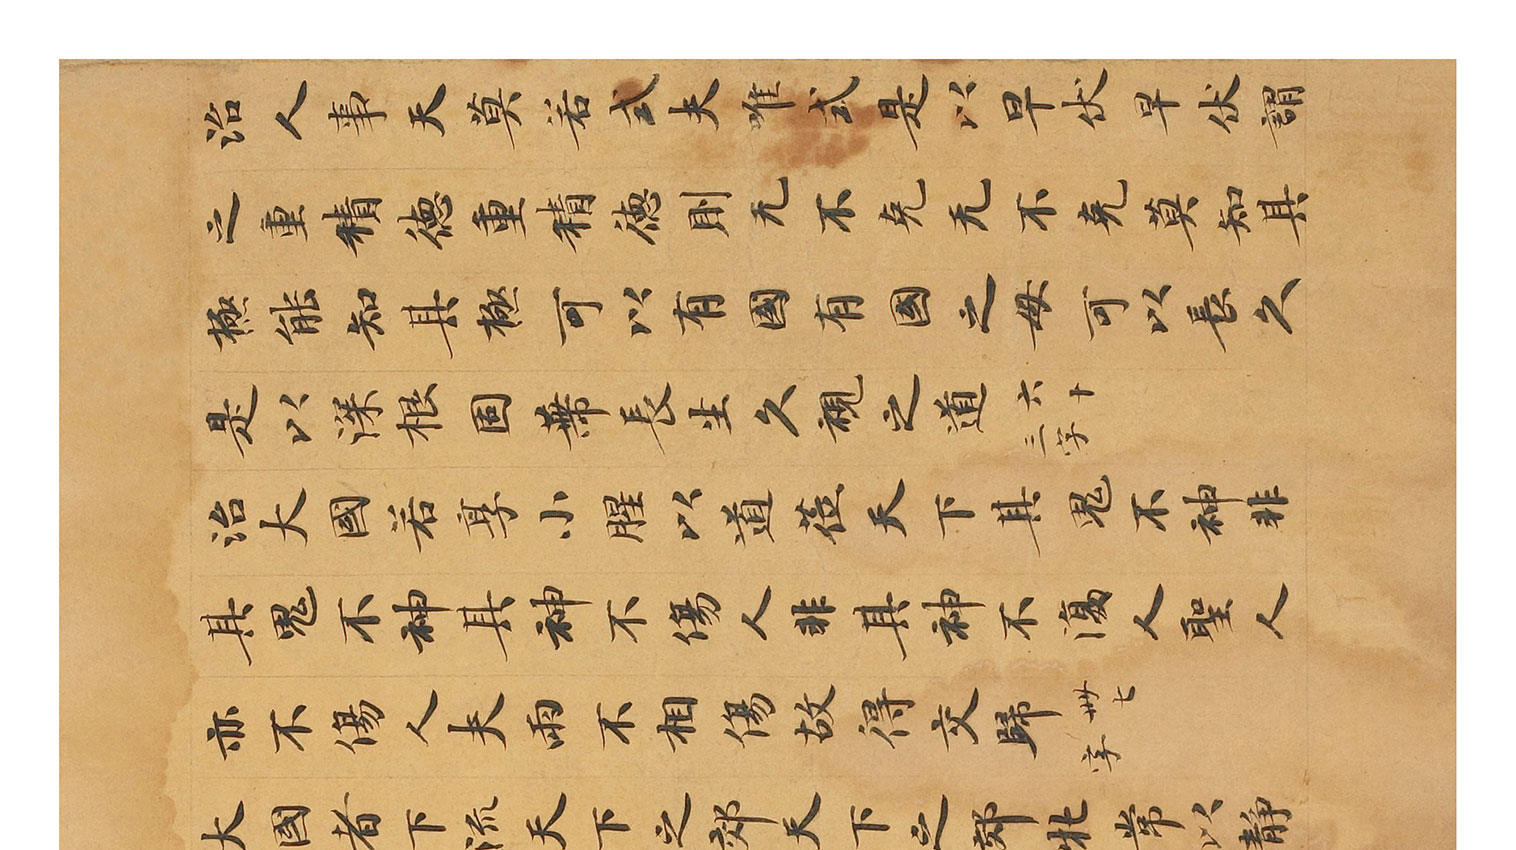 治人事天莫若式夫唯式是以早伏早伏謂
之重積德重積德則无不克无不克莫知其
極能知其極可以有國有國之母可以長久
是以深根固蔕長生久視之道六十三字
治大國若享小腥以道莅天下其鬼不神非
其鬼不神其神不傷人非其神不傷人聖人
亦不傷人夫兩不相傷故得交歸卌七字
大國者下流天下之郊天下之郊牝常以靜